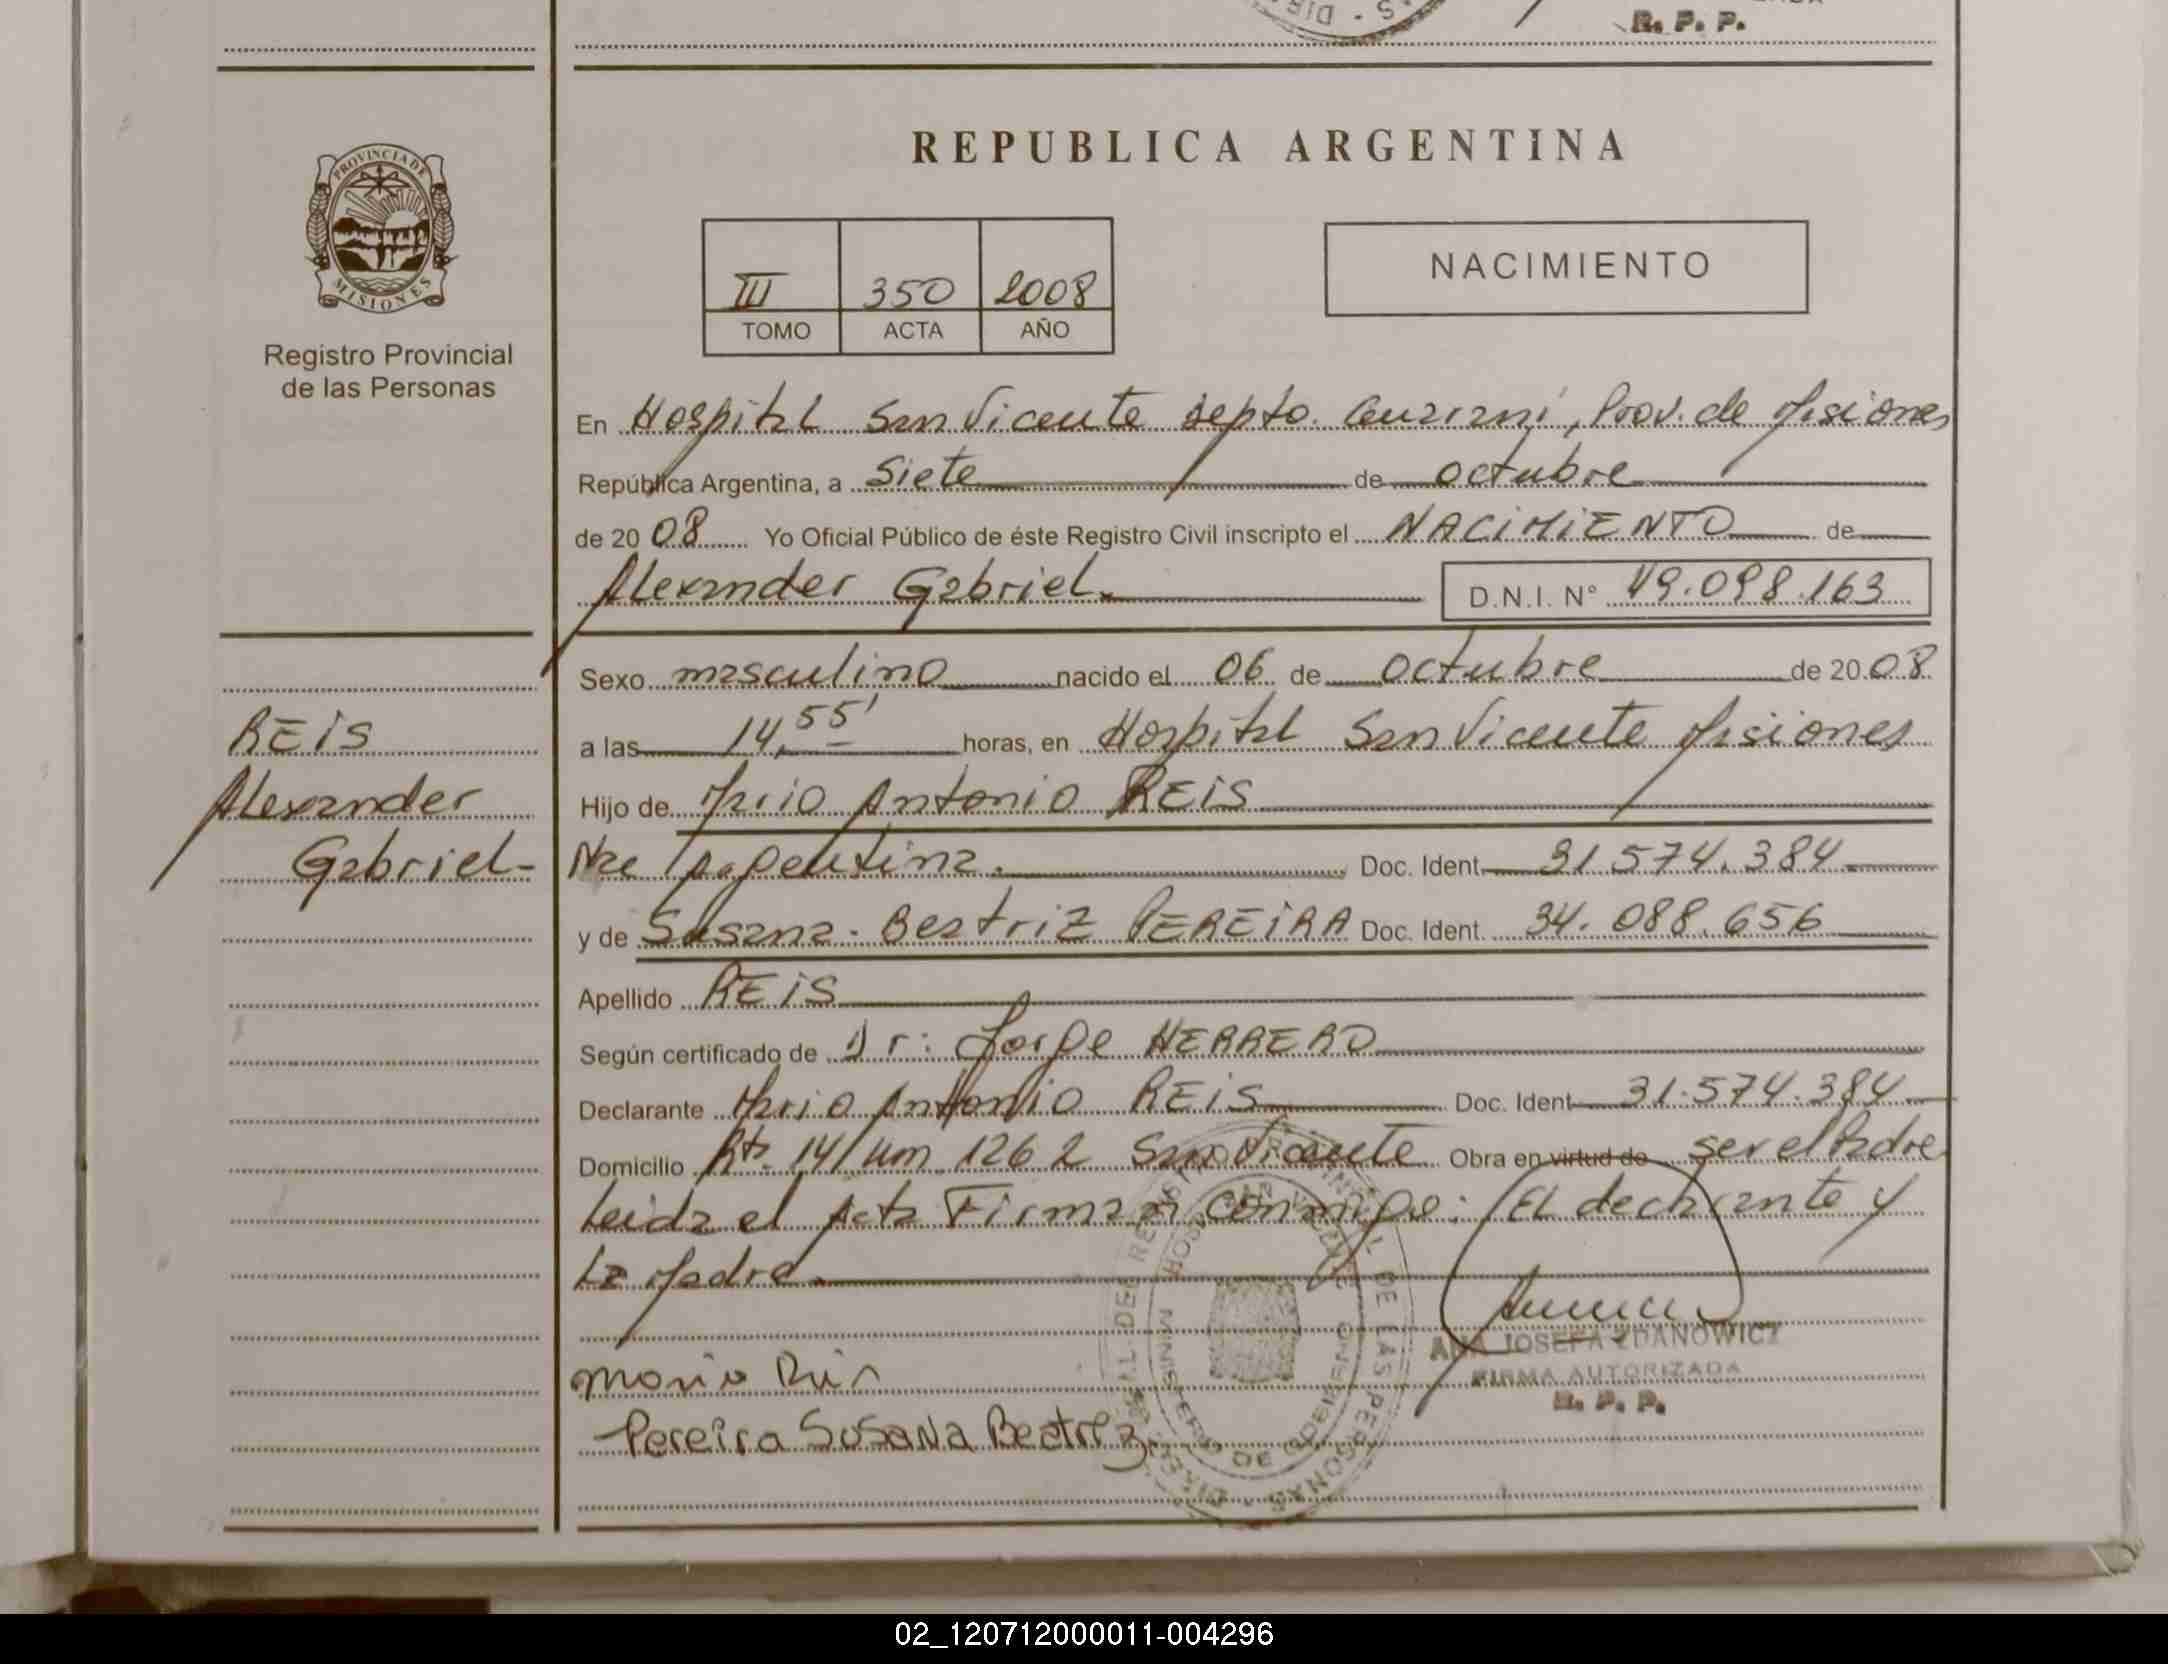 R. P. P.
REPUBLICA ARGENTINA
PROVINCIA DE
MISIONES
Registro Provincial
de las Personas
III 350 2008
TOMO ACTA AÑO
NACIMIENTO
En Hospital San Vicente Depto. Guaraní, Prov. de Misiones
República Argentina, a Siete de octubre
de 2008 Yo Oficial Público de éste Registro Civil inscripto el NACIMIENTO de
Alexander Gabriel. D.N.I. N° 49.098.163
Sexo masculino nacido el 06 de octubre de 2008
REIS
a las 14,55' horas, en Hospital San Vicente Misiones
Alexander
Hijo de Mario Antonio REIS
Gabriel-
Nac Argentina. Doc. Ident 31.574.384
y de Susana. Beatriz PEREIRA Doc. Ident. 34.088.656
Apellido REIS
Según certificado de Dr: Jorge HERRERO
Declarante Mario Antonio REIS Doc. Ident 31.574.384
Domicilio Rta. 14/km 1262 San Vicente Obra en virtud de ser el Padre
Leida el Acta Firman conmigo: El declarante y
La Madre.
ANA JOSEFA ZDANOWICZ
FIRMA AUTORIZADA
R. P. P.
Mario Reis
Pereira Susana Beatriz
02_120712000011-004296